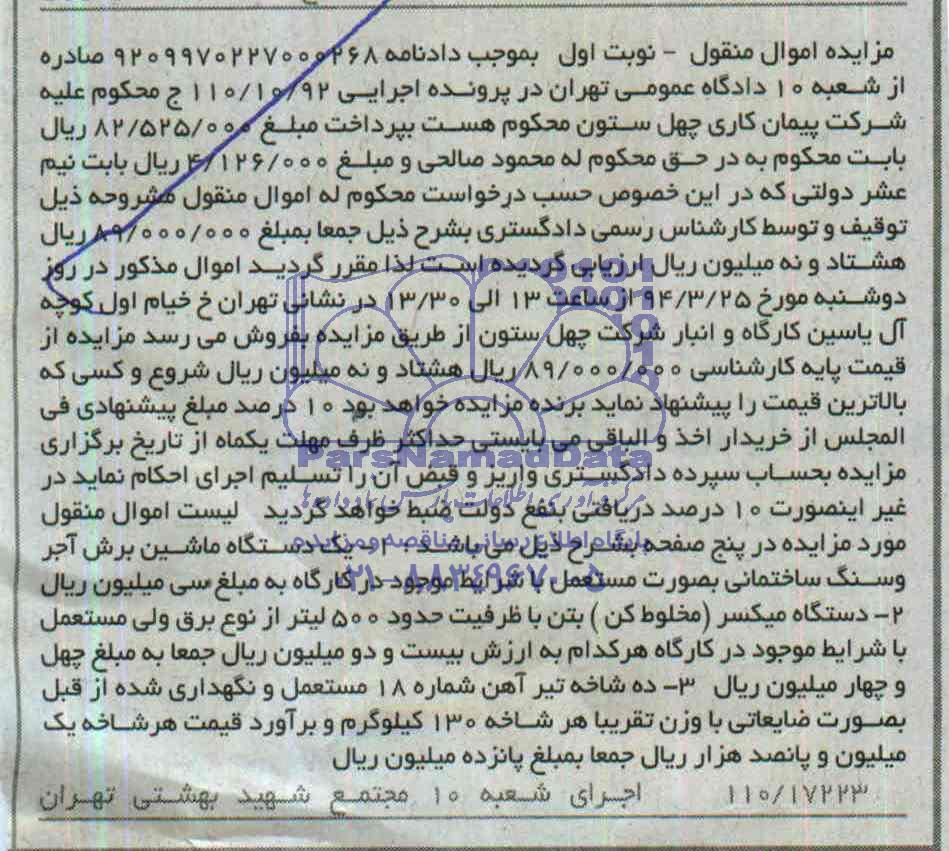 مزایده اموال منقول - نوبت اول بموجب دادنامه ۹۲۰۹۹۷۰۲۲۷۰۰۰۲۶۸ صادره
از شعبه ۱۰ دادگاه عمومی تهران در پرونده اجرایی ۱۱۰/۱۰/۹۲ ج محکوم علیه
شرکت پیمان کاری چهل ستون محکوم هست بپرداخت مبلغ ۸۲/۵۲۵/۰۰۰ ریال
بابت محکوم به در حق محکوم له محمود صالحی و مبلغ ۴/۱۲۶/۰۰۰ ریال بابت نیم
عشر دولتی که در این خصوص حسب درخواست محکوم له اموال منقول مشروحه ذیل
توقیف و توسط کارشناس رسمی دادگستری بشرح ذیل جمعا بمبلغ ۸۹/۰۰۰/۰۰۰ ریال
هشتاد و نه میلیون ریال ارزیابی گردیده است لذا مقرر گردید اموال مذکور در روز
دوشنبه مورخ ۹۴/۳/۲۵ از ساعت ۱۳ الی ۱۳/۳۰ در نشانی تهران خ خیام اول کوچه
آل یاسین کارگاه و انبار شرکت چهل ستون از طریق مزایده بفروش می رسد مزایده از
قیمت پایه کارشناسی ۸۹/۰۰۰/۰۰۰ ریال هشتاد و نه میلیون ریال شروع و کسی که
بالاترین قیمت را پیشنهاد نماید برنده مزایده خواهد بود ۱۰ درصد مبلغ پیشنهادی فی
المجلس از خریدار اخذ و الباقی می بایستی حداکثر ظرف مهلت یکماه از تاریخ برگزاری
ParsNamadData
مزایده بحساب سپرده دادگستری واریز و قبض آن را تسلیم اجرای احکام نماید در
غیر اینصورت ۱۰ درصد دریافتی بنفع دولت ضبط خواهد گردید لیست اموال منقول
مورد مزایده در پنج صفحه بشرح ذیل می باشد ۱- یک دستگاه ماشین برش آجر
پایگاه اطلاع رسانی مناقصه و مزایده
وسنگ ساختمانی بصورت مستعمل با شرایط موجود در کارگاه به مبلغ سی میلیون ریال
۰۲۱-۸۸۳۴۹۶۷۰-۵
۲- دستگاه میکسر (مخلوط کن) بتن با ظرفیت حدود ۵۰۰ لیتر از نوع برق ولی مستعمل
با شرایط موجود در کارگاه هرکدام به ارزش بیست و دو میلیون ریال جمعا به مبلغ چهل
و چهار میلیون ریال ۳- ده شاخه تیر آهن شماره ۱۸ مستعمل و نگهداری شده از قبل
بصورت ضایعاتی با وزن تقریبا هر شاخه ۱۳۰ کیلوگرم و برآورد قیمت هرشاخه یک
میلیون و پانصد هزار ریال جمعا بمبلغ پانزده میلیون ریال
۱۱۰/۱۷۲۲۳ اجرای شعبه ۱۰ مجتمع شهید بهشتی تهران